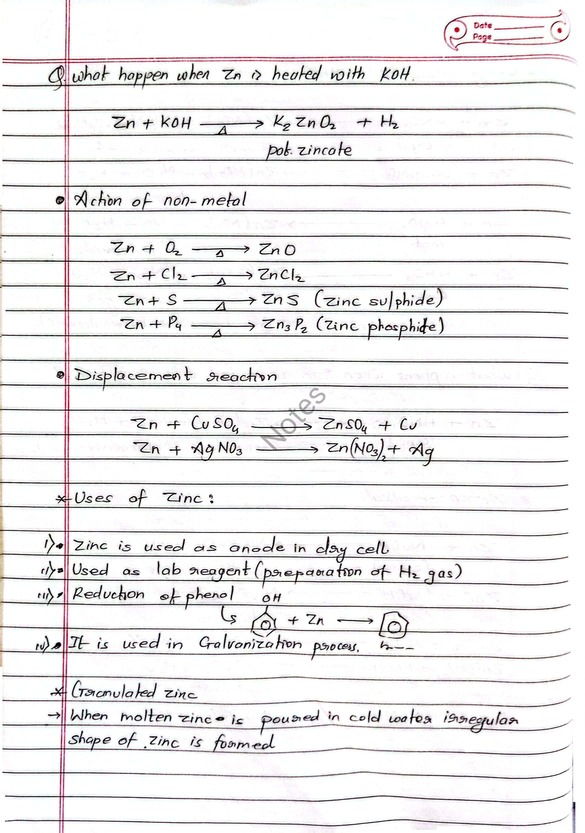 Date
Page
Q what happen when Zn is heated with KOH.
Zn + KOH —Δ→ K2ZnO2 + H2
pot. zincate
• Action of non-metal
Zn + O2 —Δ→ ZnO
Zn + Cl2 —Δ→ ZnCl2
Zn + S —Δ→ ZnS (zinc sulphide)
Zn + P4 —Δ→ Zn3P2 (zinc phosphide)
• Displacement reaction
Zn + CuSO4 → ZnSO4 + Cu
Zn + AgNO3 → Zn(NO3)2 + Ag
Notes
* Uses of Zinc :
i)• Zinc is used as anode in dry cell
ii)• Used as lab reagent (preparation of H2 gas)
iii)• Reduction of phenol
OH
+ Zn →
iv)• It is used in Galvanization process.
* Granulated zinc
→ When molten zinc is poured in cold water irregular
shape of zinc is formed